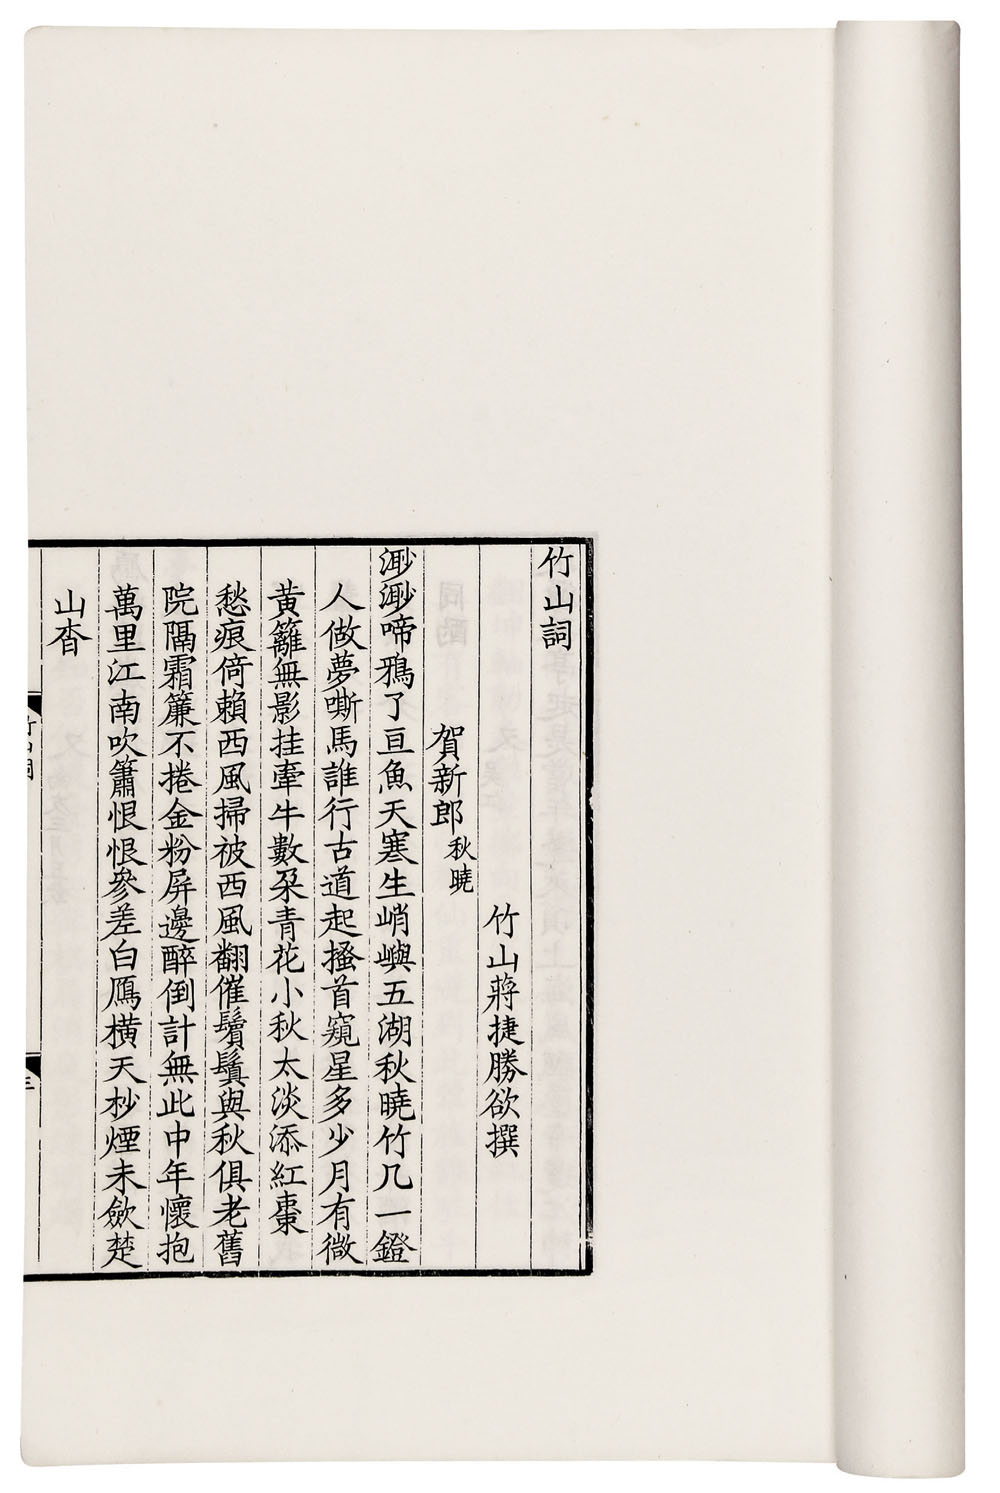 竹山詞
竹山蔣捷勝欲撰
賀新郎秋曉
渺渺啼鴉了亘魚天寒生峭嶼五湖秋曉竹几一鐙
人做夢嘶馬誰行古道起搔首窺星多少月有微
黃籬無影挂牽牛數朶青花小秋太淡添紅棗
愁痕倚賴西風掃被西風翻催鬢鬒與秋俱老舊
院隔霜簾不捲金粉屏邊醉倒計無此中年懷抱
萬里江南吹簫恨恨參差白鴈橫天杪煙未斂楚
山杳
竹山詞
三